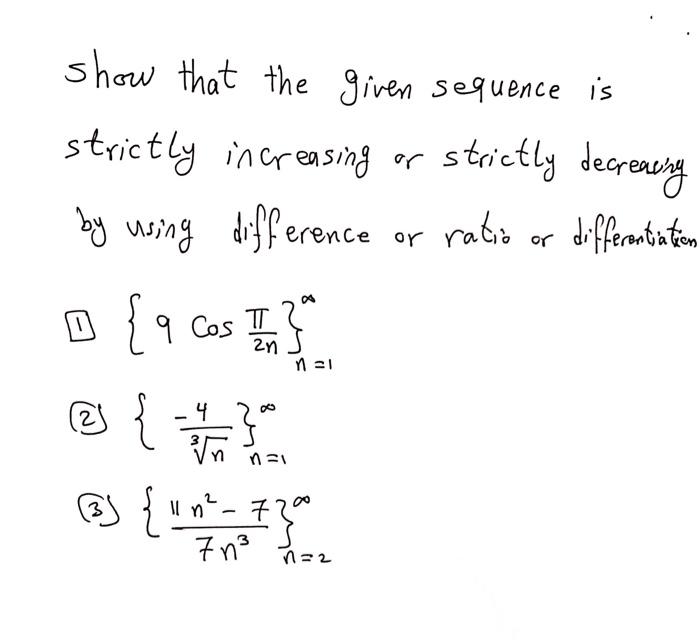 show that the given sequence is
strictly increasing or strictly decreasing
by using difference or ratio or differentiation
1 { 9 cos π/2n }^∞_{n=1}
(2) { -4/∛n }^∞_{n=1}
(3) { 11n² - 7 / 7n³ }^∞_{n=2}